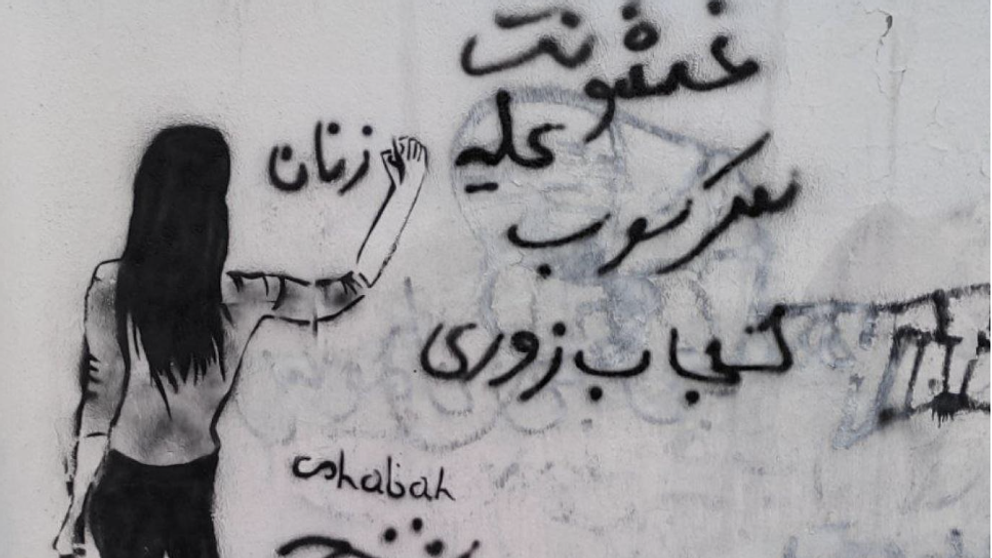 خشونت
علیه زنان
سرکوب
حجاب زوری
cshabah